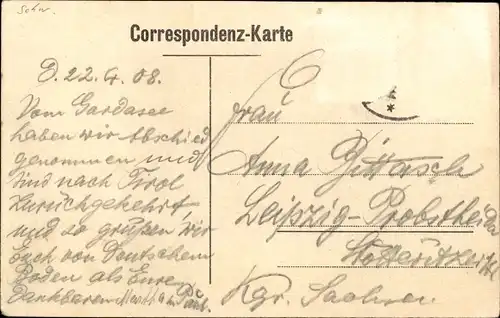 Schw.
Correspondenz-Karte
D. 22. 4. 08.
Vom Gardasee
haben wir Abschied
genommen und
sind nach Tirol
zurückgekehrt,
und so grüßen wir
Euch von Deutschem
Boden als Eure
dankbaren
Frau
Anna
Leipzig-Probstheida
Kgr. Sachsen